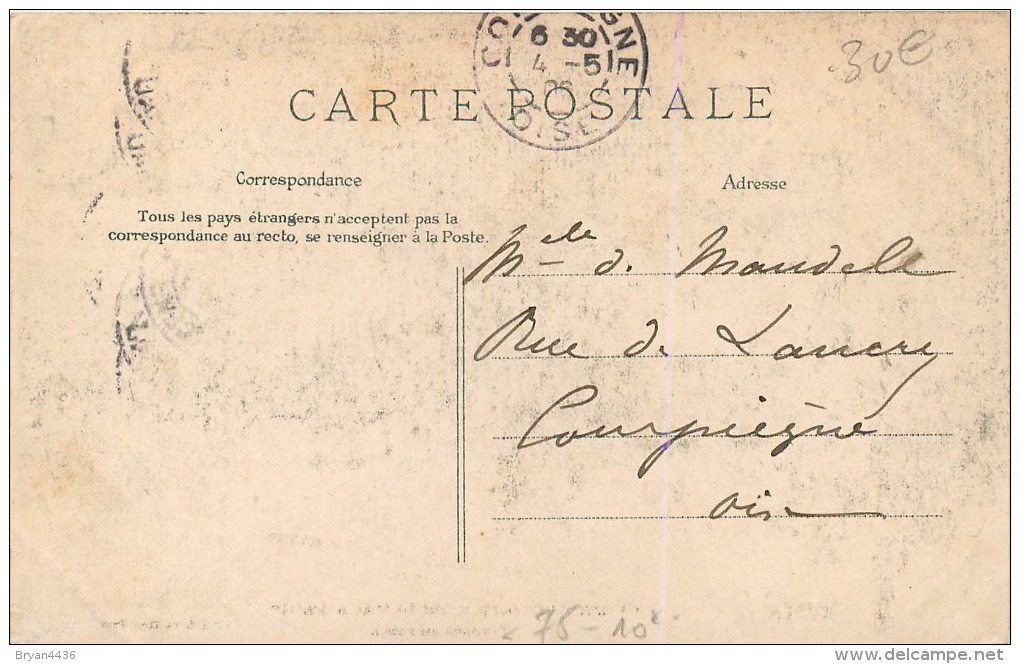 GNE
6 30
4 -5
OISE
30€
CARTE POSTALE
Correspondance
Adresse
Tous les pays étrangers n'acceptent pas la
correspondance au recto, se renseigner à la Poste.
Melle d. Mandell
Rue de Lancry
Compiègne
Oise
75-10e
Bryan4436
www.delcampe.net